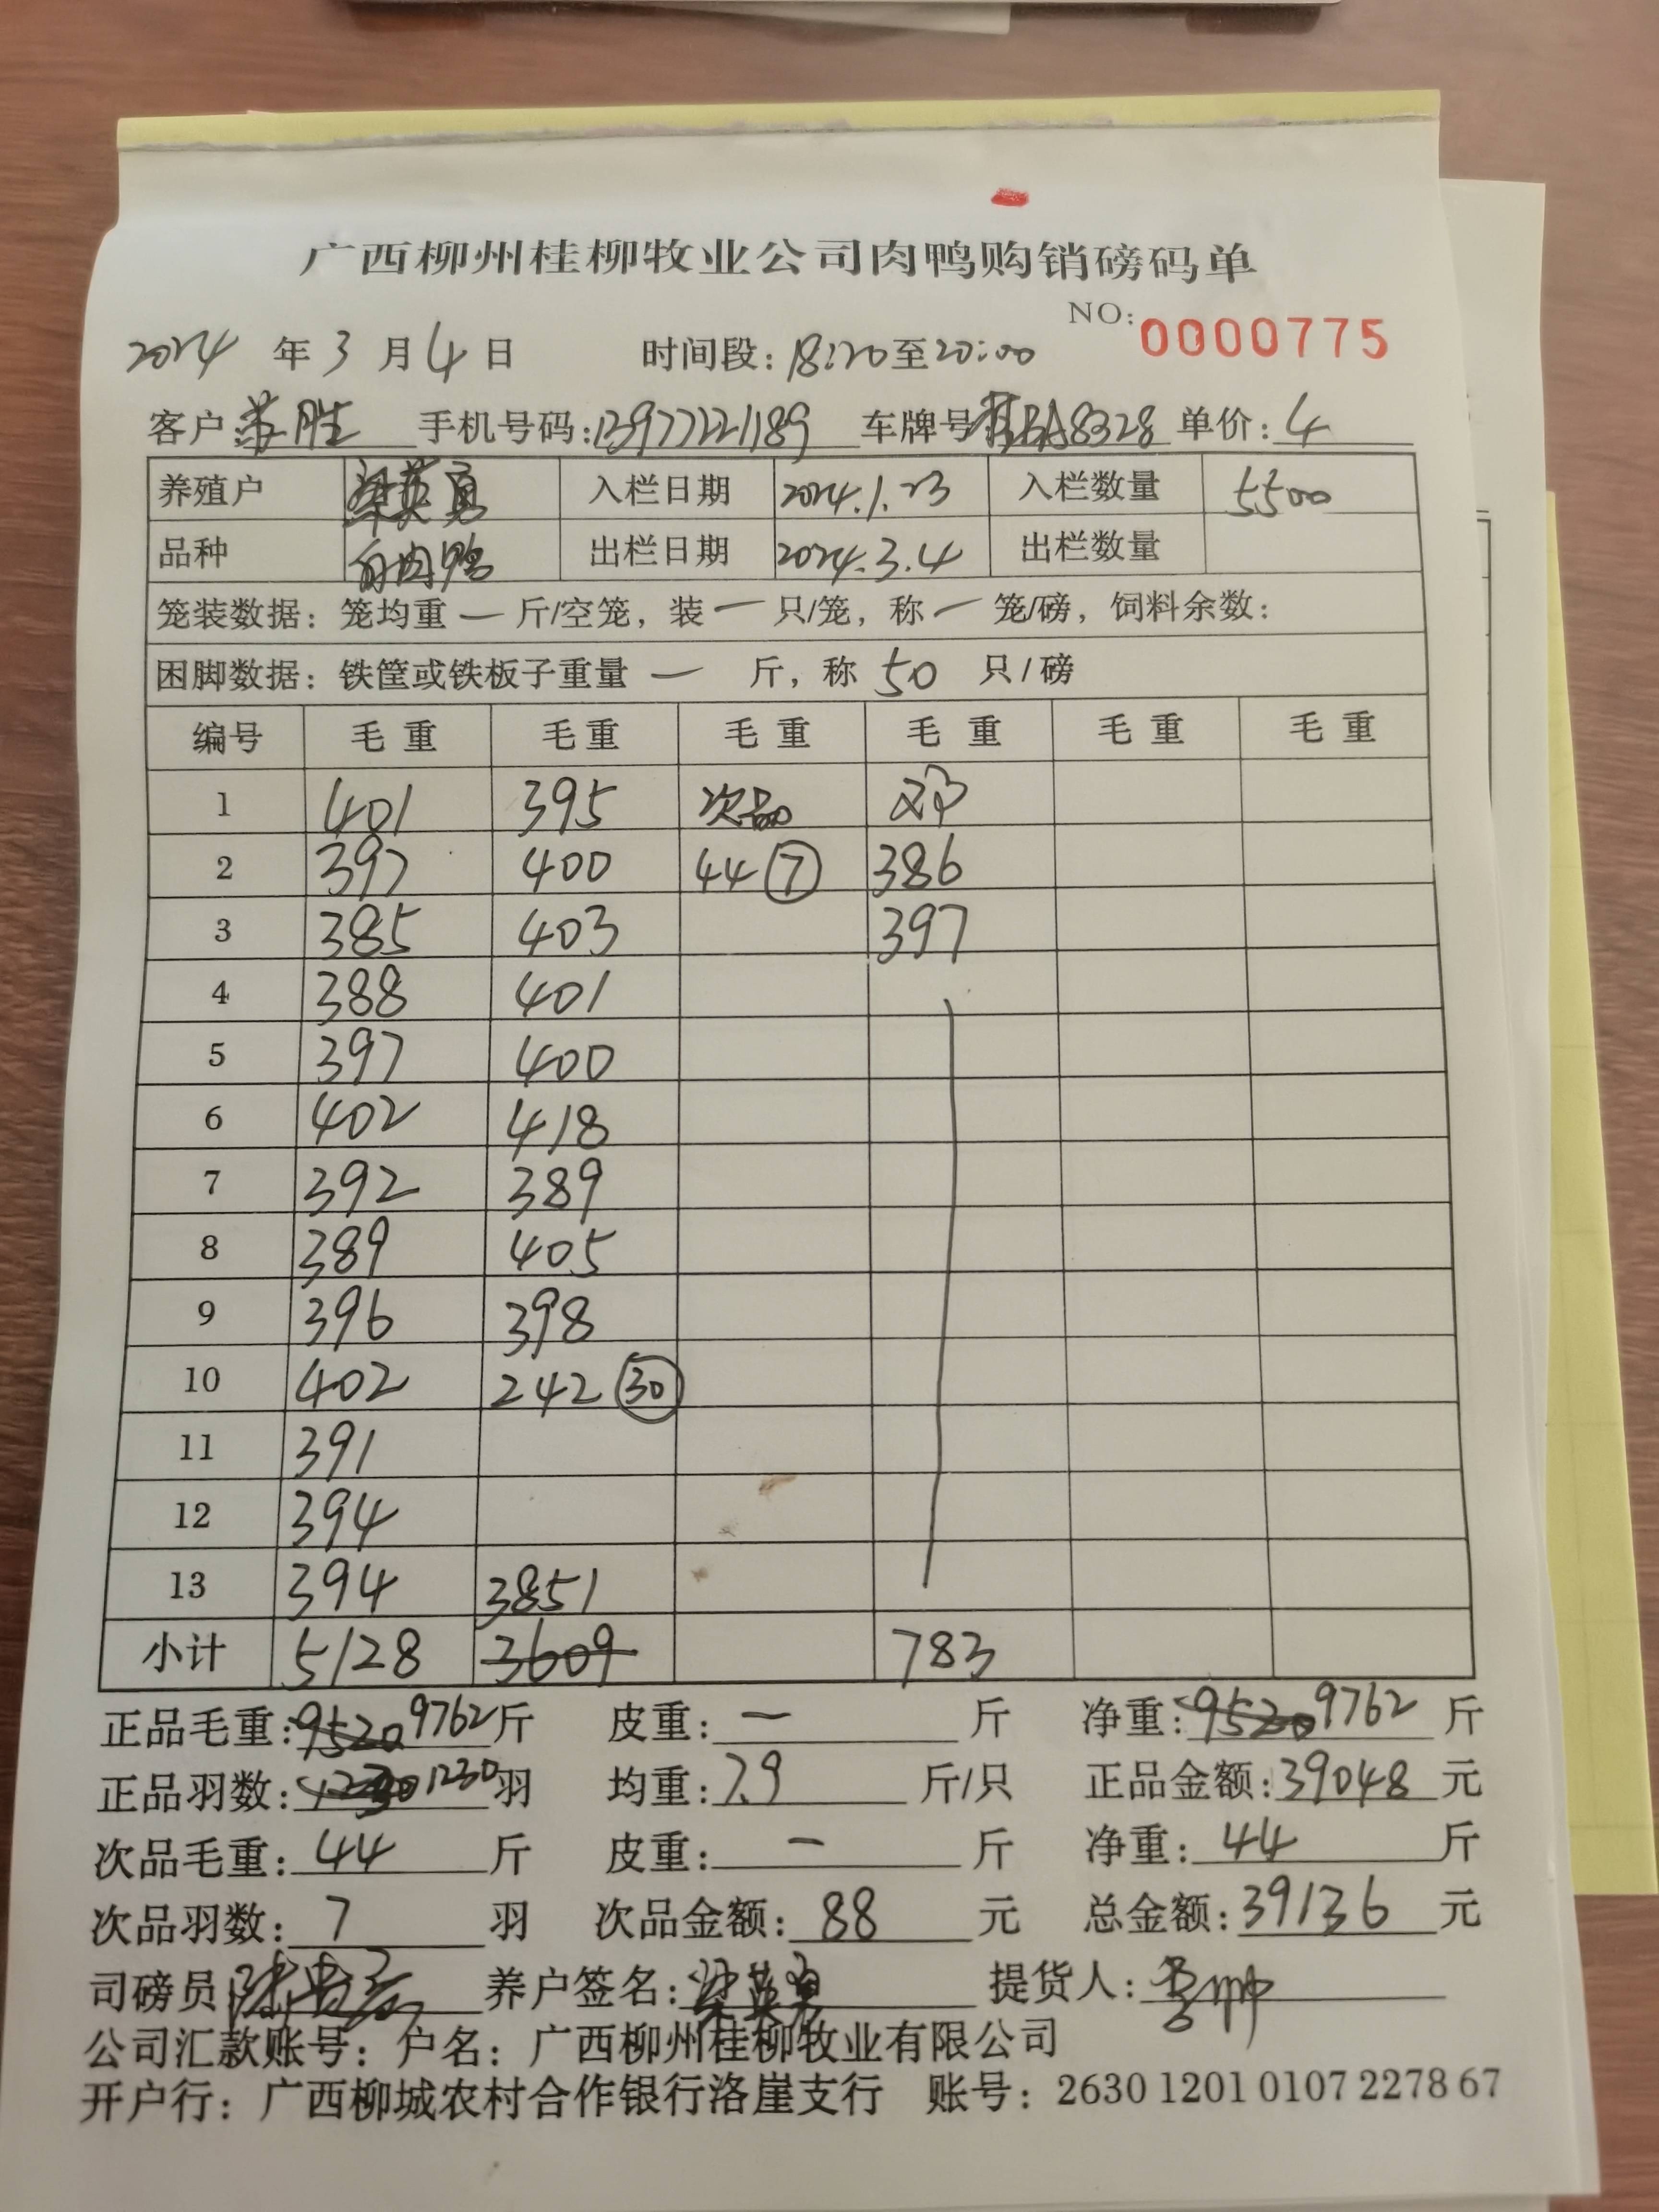 广西柳州桂柳牧业公司肉鸭购销磅码单
NO: 0000775
2024 年 3 月 4 日 时间段: 18:20 至 20:00
客户 胜 手机号码: 13977221189 车牌号 A8328 单价: 4
养殖户 梁英勇 入栏日期 2024.1.23 入栏数量 5500
品种 白肉鸭 出栏日期 2024.3.4 出栏数量
笼装数据: 笼均重 一 斤/空笼, 装 一 只/笼, 称 一 笼/磅, 饲料余数:
困脚数据: 铁筐或铁板子重量 一 斤, 称 50 只/磅
编号 毛重 毛重 毛重 毛重 毛重 毛重
1 401 395 次品 邓
2 397 400 44 ⑦ 386
3 385 403 397
4 388 401
5 397 400
6 402 418
7 392 389
8 389 405
9 396 398
10 402 242 ㉚
11 391
12 394
13 394 3851
小计 5128 3609 783
正品毛重: 9520 9762 斤 皮重: 一 斤 净重: 9520 9762 斤
正品羽数: 1230 羽 均重: 7.9 斤/只 正品金额: 39048 元
次品毛重: 44 斤 皮重: 一 斤 净重: 44 斤
次品羽数: 7 羽 次品金额: 88 元 总金额: 39136 元
司磅员 养户签名: 梁英勇 提货人:
公司汇款账号: 户名: 广西柳州桂柳牧业有限公司
开户行: 广西柳城农村合作银行洛崖支行 账号: 2630 1201 0107 2278 67